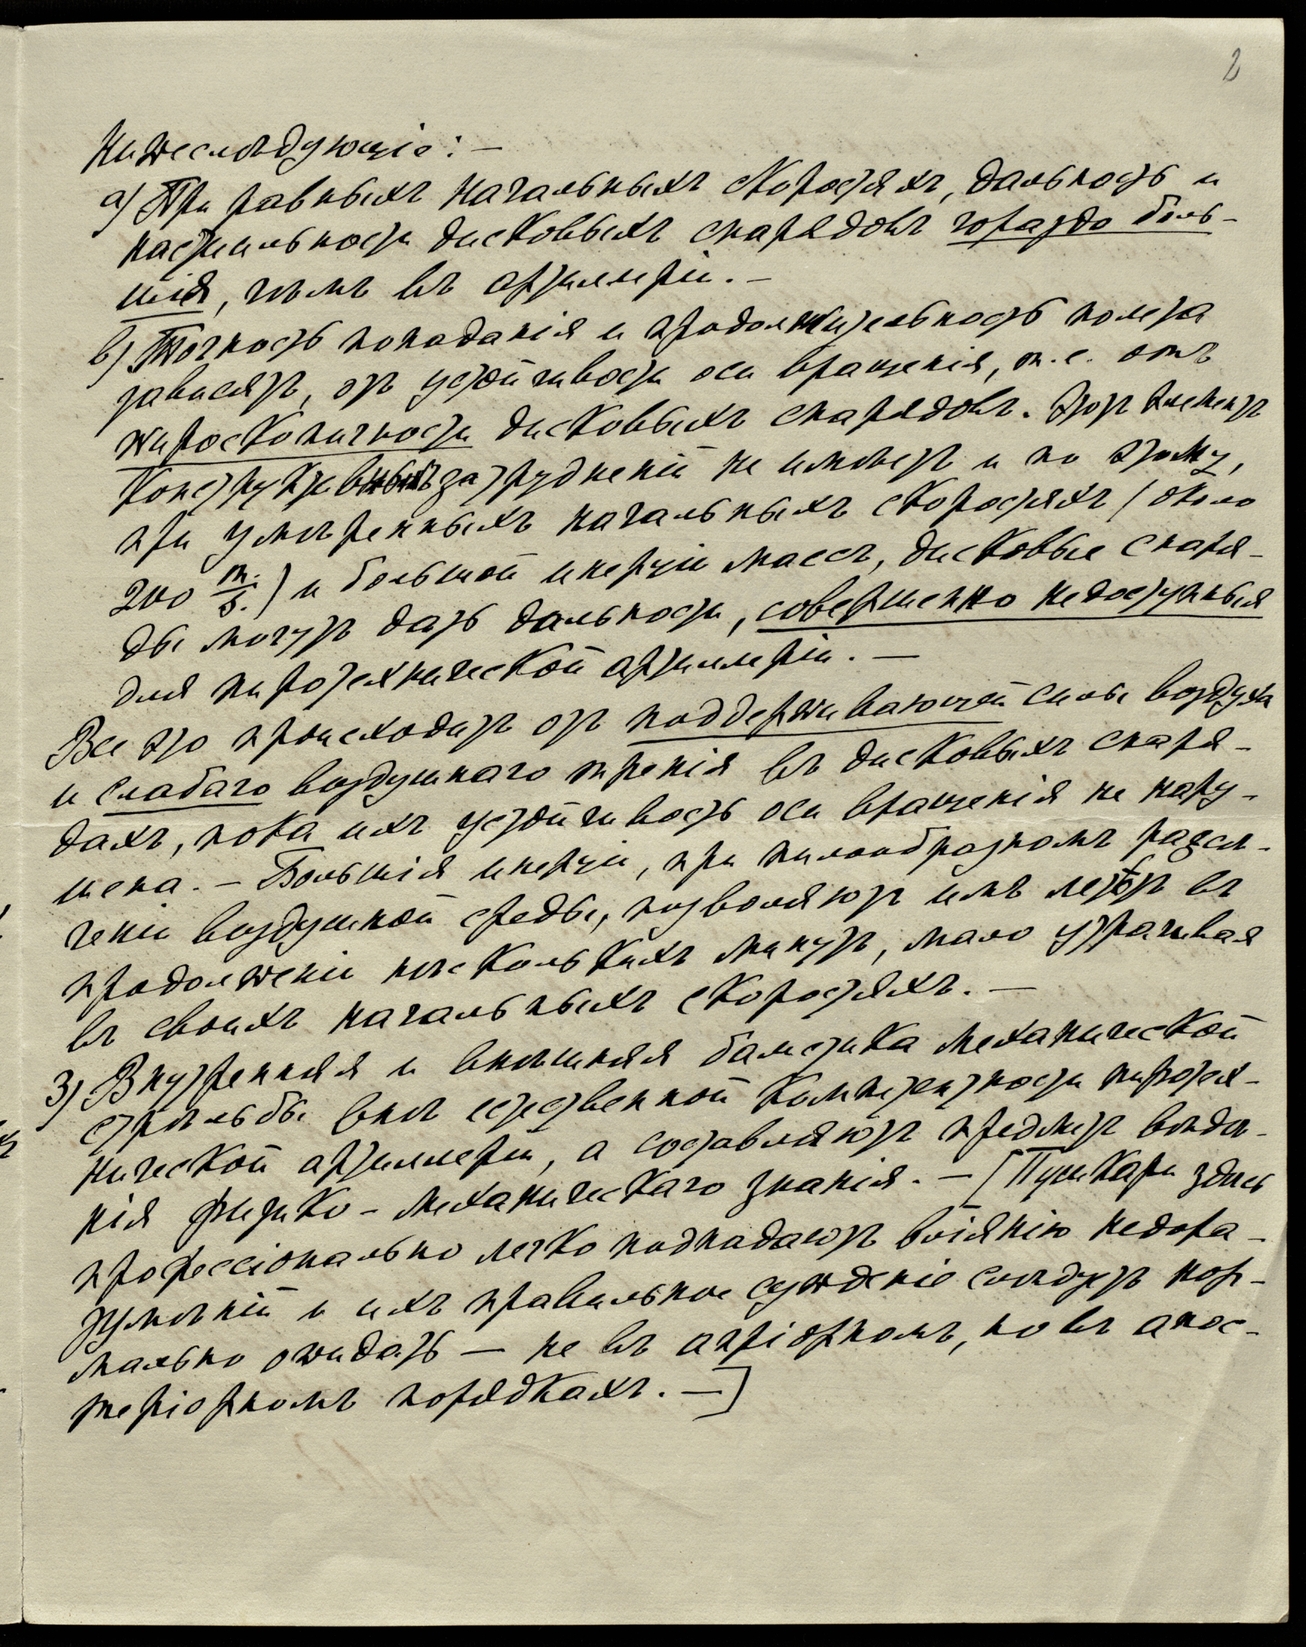 2
нижеслѣдующіе: —
а) При равныхъ начальныхъ скоростяхъ, дальность и
настильность дисковыхъ снарядовъ гораздо боль-
шія, чѣмъ въ артиллеріи. —
в) Точность попаданія и продолжительность полета
зависятъ, отъ устойчивости оси вращенія, т. е. отъ
жироскопичности дисковыхъ снарядовъ. Этотъ элементъ
конструктивныхъ затрудненій не имѣетъ и по этому,
при умѣренныхъ начальныхъ скоростяхъ (около
200 m./s.) и большой инерціи массъ, дисковые снаря-
ды могутъ дать дальности, совершенно недоступныя
для пиротехнической артиллеріи. —
Все это происходитъ отъ поддерживающей силы воздуха
и слабаго воздушнаго тренія въ дисковыхъ снаря-
дахъ, пока ихъ устойчивость оси вращенія не нару-
шена. — Большія инерціи, при пилообразномъ разсѣ-
ченіи воздушной среды, позволяютъ имъ летѣть въ
продолженіи нѣсколькихъ минутъ, мало утрачивая
въ своихъ начальныхъ скоростяхъ. —
3) Внутренняя и внѣшняя балистика механической
стрѣльбы внѣ естественной компетентности пиротех-
нической артиллеріи, а составляютъ предметъ вѣдѣ-
нія физико-механическаго знанія. — [Пушкари здѣсь
профессіонально легко подпадаютъ вліянію недора-
зумѣній и ихъ правильное сужденіе слѣдуетъ нор-
мально ожидать — не въ апріорномъ, но въ апос-
теріорномъ порядкахъ. —]